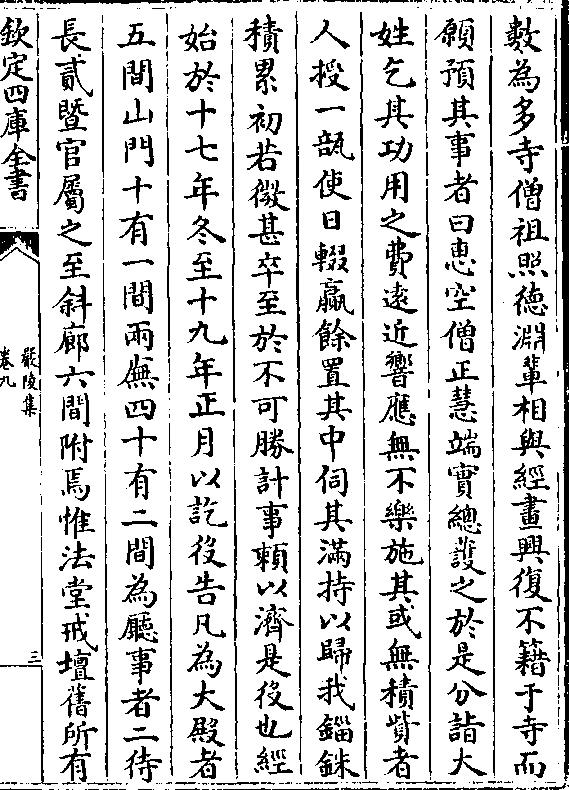 數為多寺僧祖照德淵輩相與經畫興復不籍于寺而
願預其事者曰惠空僧正慧端實總護之於是分詣大
姓乞其功用之費逺近響應無不樂施其或無積貲者
人授一瓿使日輟贏餘置其中伺其滿持以歸我錙銖
積累初若微甚卒至於不可勝計事頼以濟是役也經
始於十七年冬至十九年正月以訖役告凡為大殿者
五間山門十有一間兩廡四十有二間為廳事者二待
長貳暨官屬之至斜廊六間附焉惟法堂戒壇舊所有
欽定四庫全書
嚴陵集
卷九
三